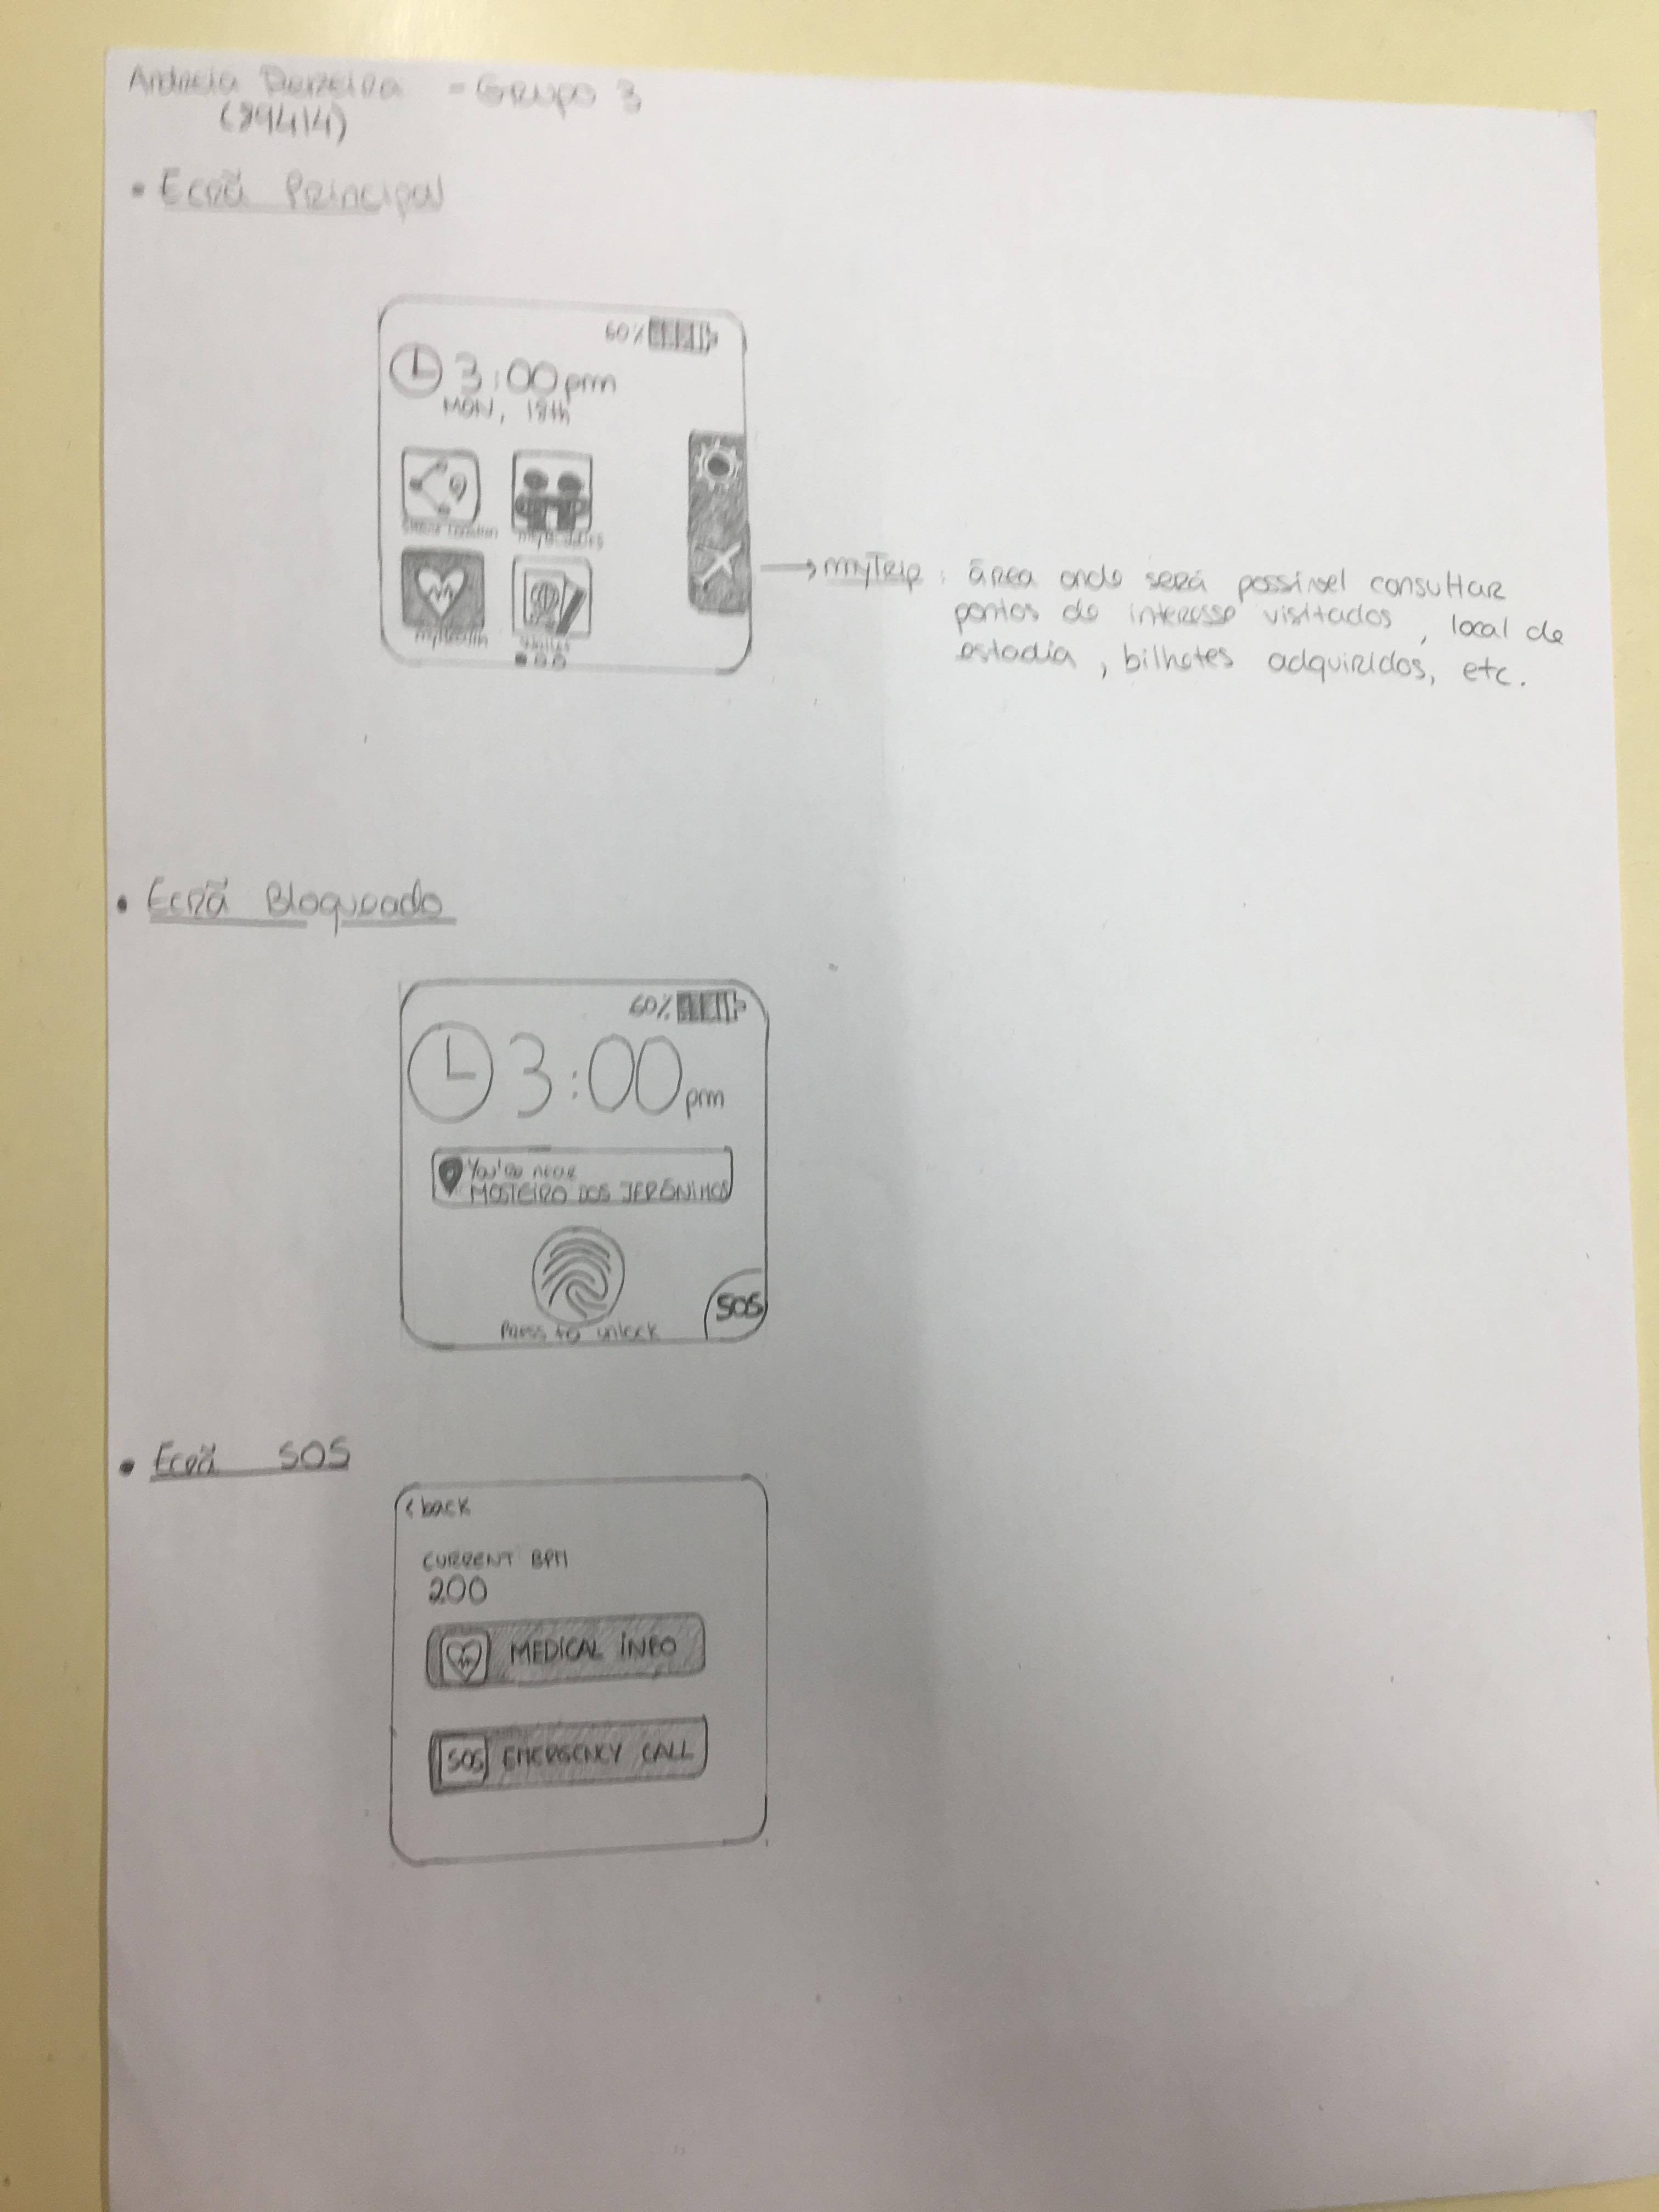 Andreia - Grupo 3
(89414)
• Ecrã Principal
60%
3:00pm
MON, 18th
Share Location
myBuddies
myHealth
Wallet
myTrip: área onde será possível consultar
pontos de interesse visitados, local de
estadia, bilhetes adquiridos, etc.
• Ecrã Bloqueado
60%
3:00pm
You're near
MOSTEIRO DOS JERÓNIMOS
Press to unlock
SOS
• Ecrã SOS
< back
CURRENT BPM
200
MEDICAL INFO
SOS EMERGENCY CALL